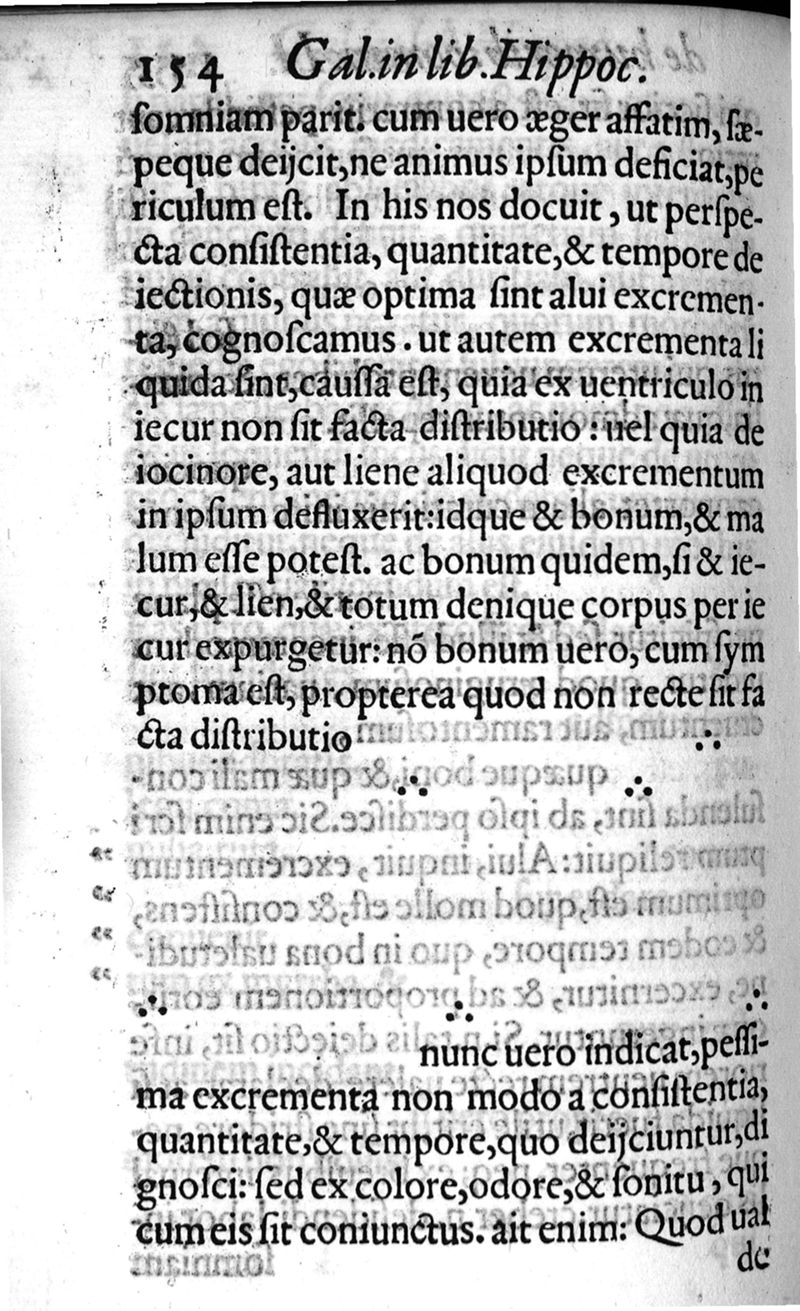 154 Gal.in lib.Hippoc.
ſomniam parit. cum uero æger affatim, ſæ-
peque deijcit,ne animus ipſum deficiat,pe
riculum eſt. In his nos docuit, ut perſpe-
cta conſiſtentia, quantitate,& tempore de
iectionis, quæ optima ſint alui excremen-
ta, cognoſcamus. ut autem excrementa li
quida ſint,cauſſa eſt, quia ex uentriculo in
iecur non ſit facta diſtributio: uel quia de
iocinore, aut liene aliquod excrementum
in ipſum defluxerit:idque & bonum,& ma
lum eſſe poteſt. ac bonum quidem,ſi & ie-
cur,& lien,& totum denique corpus per ie
cur expurgetur: nõ bonum uero, cum ſym
ptoma eſt, propterea quod non recte ſit fa
cta diſtributio
nunc uero indicat,peſſi-
ma excrementa non modo a conſiſtentia,
quantitate,& tempore,quo deijciuntur,di
gnoſci: ſed ex colore,odore,& ſonitu, qui
cum eis ſit coniunctus. ait enim: Quod ual
de